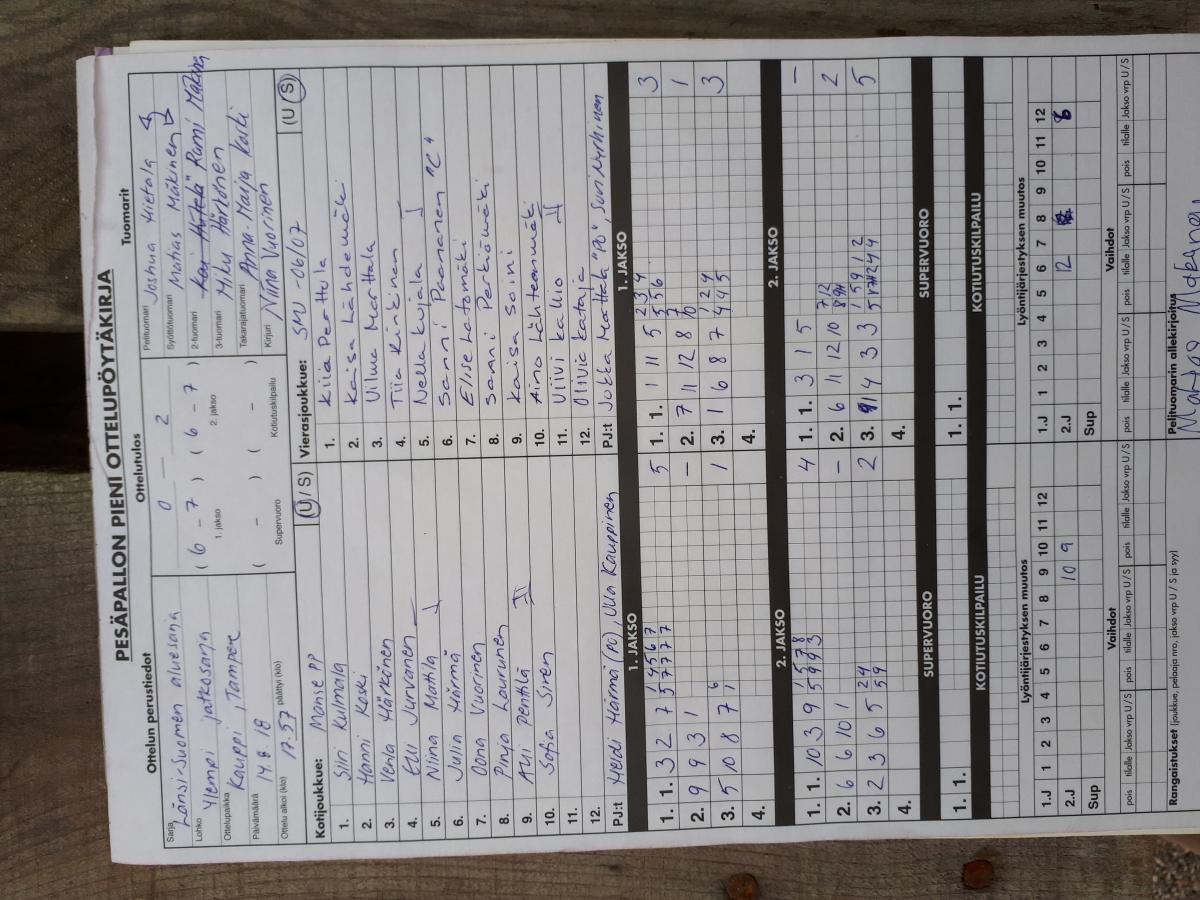 PESÄPALLON PIENI OTTELUPÖYTÄKIRJA
Ottelun perustiedot
Sarja Länsi-Suomen aluesarja
Lohko Ylempi jatkosarja
Ottelupaikka Kauppi, Tampere
Päivämäärä 14.8.18
Ottelu alkoi (klo) 17.57 päättyi (klo)
Ottelutulos
0 – 2
( 6 – 7 ) ( 6 – 7 )
1. jakso 2. jakso
( – ) ( – )
Supervuoro Kotiutuskilpailu
Tuomarit
Pelituomari Joshua Hietala
Syöttötuomari Matias Mäkinen
2-tuomari Rami Mäkinen
3-tuomari Miku Härkönen
Takarajatuomari Anna-Marja Karki
Kirjuri Niina Vuorinen
Kotijoukkue: Manse PP (U / S)
1. Siiri Kulmala
2. Hanni Koski
3. Venla Härkönen
4. Elli Jurvanen
5. Niina Mattila
6. Julia Härmä
7. Oona Vuorinen
8. Pinja Laurunen
9. Alli Penttilä
10. Sofia Siren
11.
12.
PJ:t Heidi Härmä (PO), Ulla Kauppinen
Vierasjoukkue: SMJ -06/07 (U / S)
1. Kiia Perttula
2. Kaisa Lähdemäki
3. Vilma Marttala
4. Tiia Rinkinen
5. Nella Kujala
6. Sanni Paananen "C"
7. Elise Latomäki
8. Sanni Perkiömäki
9. Kaisa Soini
10. Aino Lähteenmäki
11. Viivi Kallio
12. Olivia Kataja
PJ:t Jukka Marttala "PO", Suvi Nyrhinen
1. JAKSO
1. 1. 3 2 7 5 7 7 7 7 5
1 4 5 6 7
2. 9 9 3 1 –
3. 5 10 8 7 1 1
6
4.
1. JAKSO
1. 1. 1 11 5 5 5 6 3
2 3 4
2. 7 11 12 8 10 1
3. 1 6 8 7 4 4 5 3
1 2 4
4.
2. JAKSO
1. 1. 10 3 9 5 9 9 3 4
1 5 7 8
2. 6 6 10 1 –
3. 2 3 6 5 5 9 2
2 4
4.
2. JAKSO
1. 1. 3 1 5 –
2. 6 11 12 10 2
7 12
3. 4 3 3 5
1 5 9 12
4.
SUPERVUORO
1. 1.
SUPERVUORO
1. 1.
KOTIUTUSKILPAILU
KOTIUTUSKILPAILU
Lyöntijärjestyksen muutos
1.J 1 2 3 4 5 6 7 8 9 10 11 12
2.J 10 9
Sup
Lyöntijärjestyksen muutos
1.J 1 2 3 4 5 6 7 8 9 10 11 12
2.J 12 8
Sup
Vaihdot
pois tilalle Jakso vrp U / S pois tilalle Jakso vrp U / S pois tilalle Jakso vrp U / S
Vaihdot
pois tilalle Jakso vrp U / S pois tilalle Jakso vrp U / S pois tilalle Jakso vrp U / S
Rangaistukset (joukkue, pelaaja nro, jakso vrp U / S ja syy)
Pelituomarin allekirjoitus